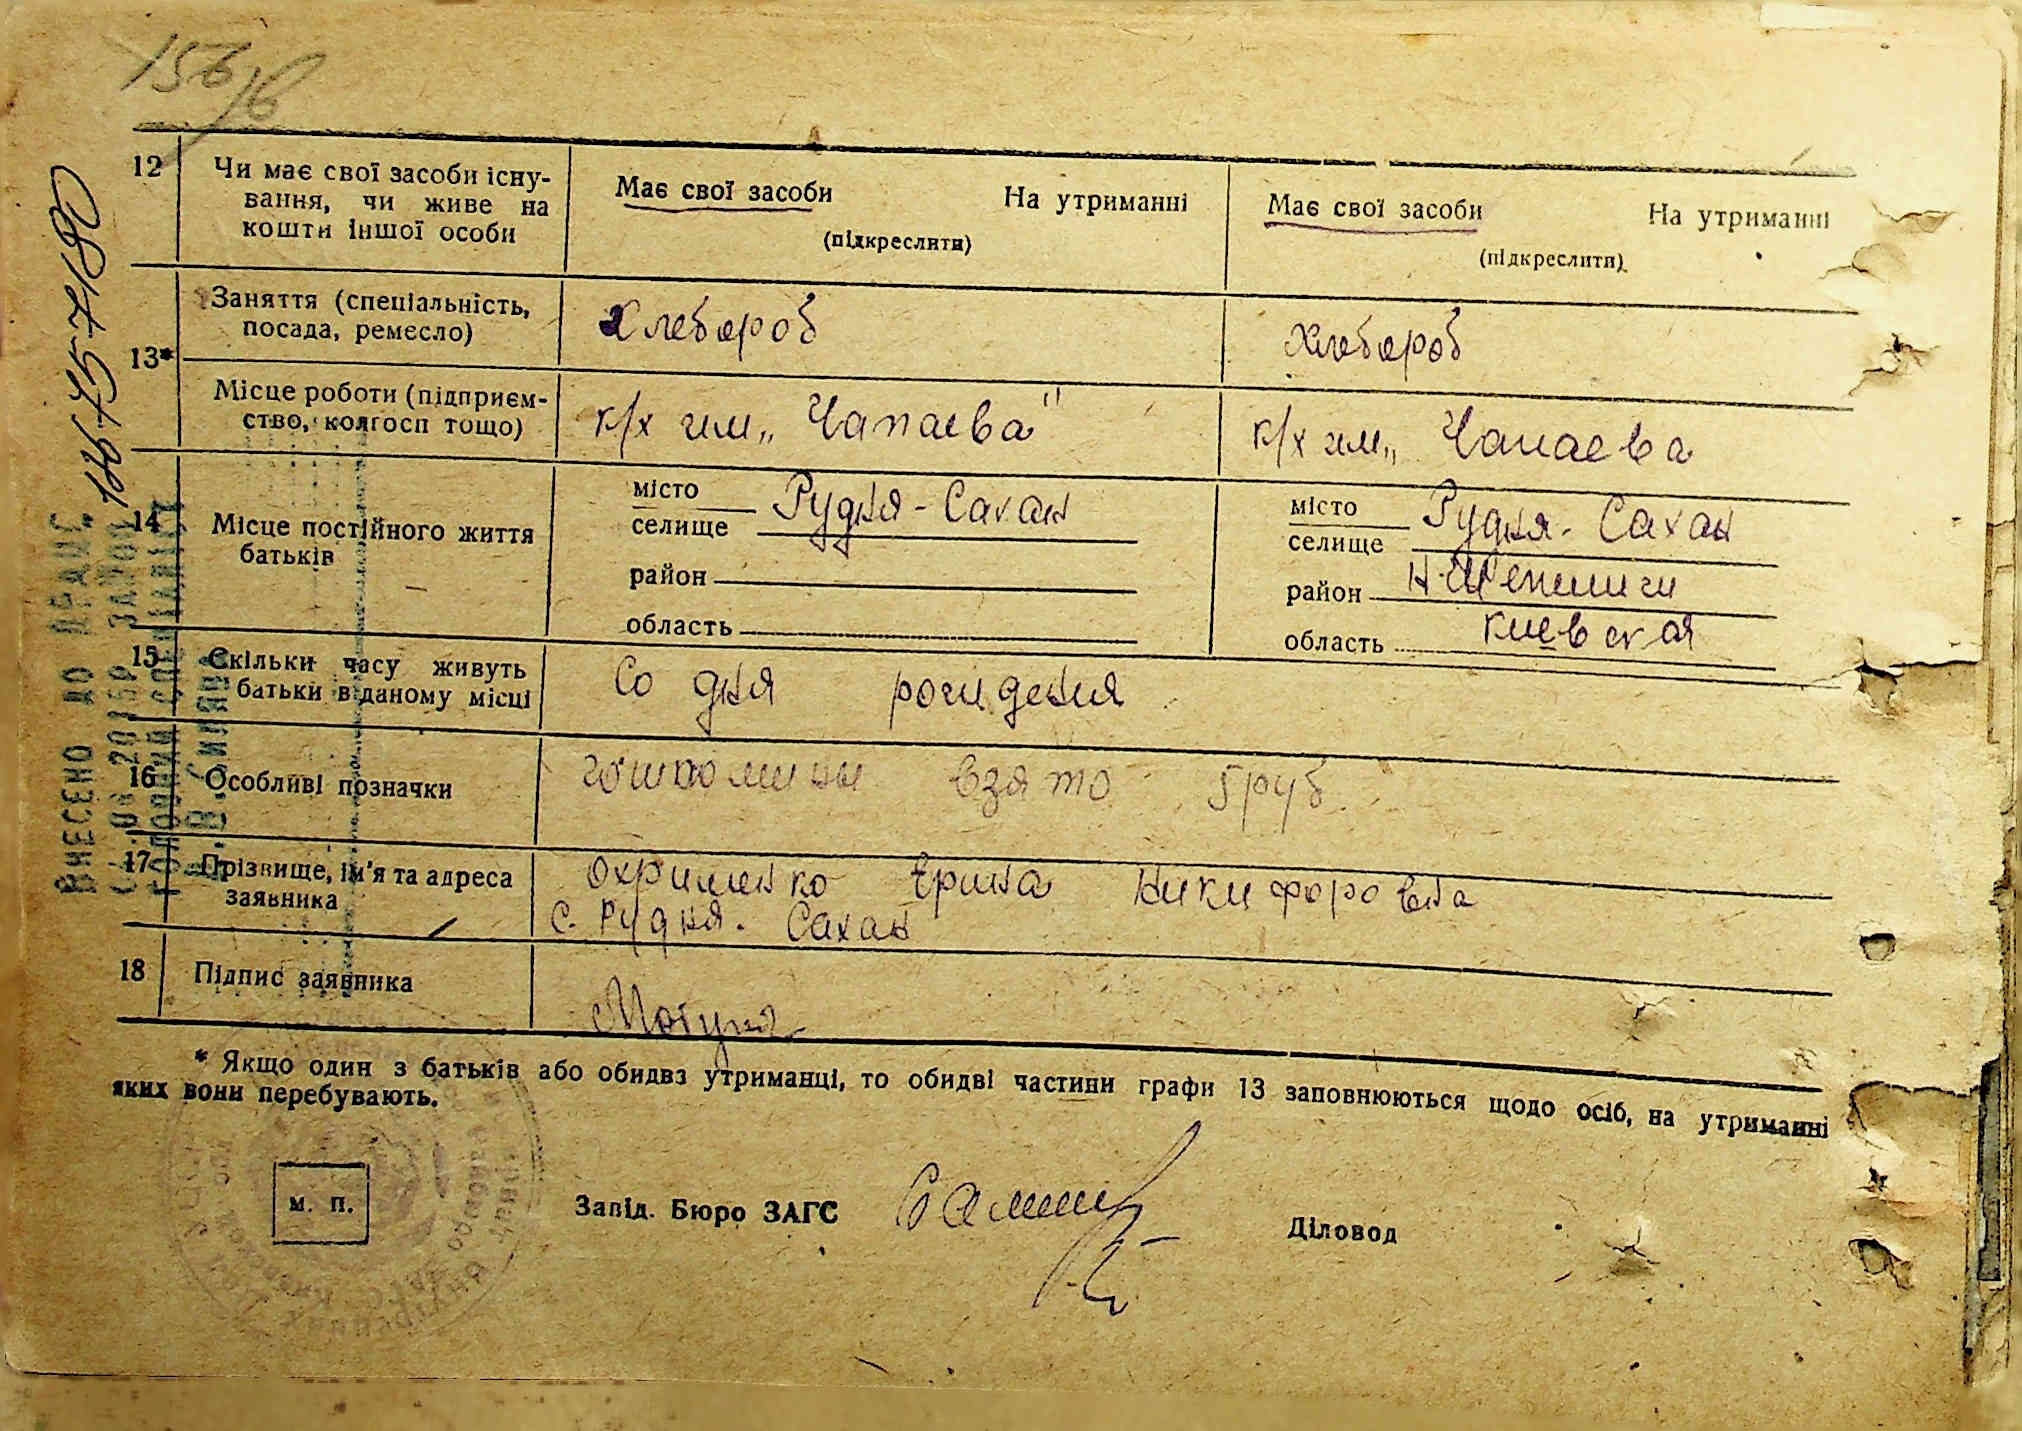 156/6
12 Чи має свої засоби існу-
вання, чи живе на
кошти іншої особи
Має свої засоби На утриманні
(підкреслити)
Має свої засоби На утриманні
(підкреслити)
13* Заняття (спеціальність,
посада, ремесло)
Хлебороб
Хлебороб
Місце роботи (підприєм-
ство, колгосп тощо)
к/х им „Чапаева"
к/х им „Чапаева
14 Місце постійного життя
батьків
місто
селище Рудня-Сахан
район
область
місто
селище Рудня-Сахан
район Н-Шепиличи
область киевская
15 Скільки часу живуть
батьки в даному місці
Со дня рождения
16 Особливі позначки
взято 5 руб
17 Прізвище, ім'я та адреса
заявника
Охрименко Ерина Никифоровна
с. Рудня-Сахан
18 Підпис заявника
* Якщо один з батьків або обидвз утриманці, то обидві частини графи 13 заповнюються щодо осіб, на утриманні
яких вони перебувають.
м. п.
Завід. Бюро ЗАГС
Діловод
ВНЕСЕНО ДО ДРАЦС